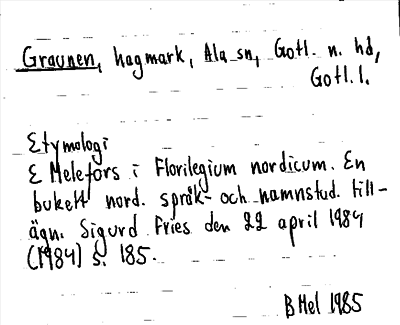 Graunen, hagmark, Ala sn, Gotl. n. hd,
Gotl. l.
Etymologi
E Melefors i Florilegium nordicum. En
bukett nord. språk- och namnstud. till-
ägn. Sigurd Fries den 22 april 1984
(1984) s. 185.
B Mel 1985